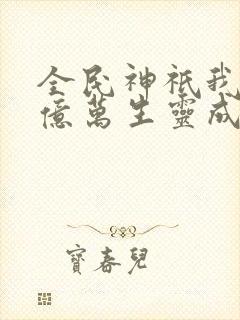 全民神祇我
億萬生靈成
寶春兒